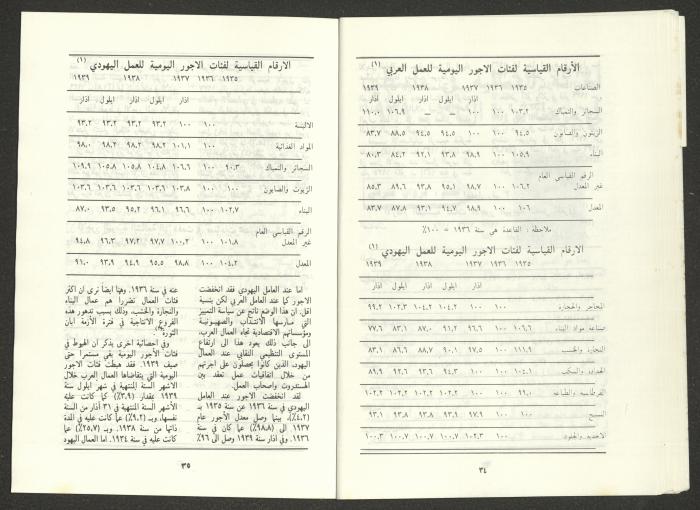 الأرقام القياسية لفئات الاجور اليومية للعمل العربي (١)
الصناعات ١٩٣٥ ١٩٣٦ ١٩٣٧ ١٩٣٨ ١٩٣٩
اذار ايلول اذار ايلول اذار
السجائر والتمباك ١٠٣,٢ ١٠٠ ١٠٠ — — ١٠٦,٩ ١١٠,٠
الزيتون والصابون ٩٤,٥ ١٠٠ ١٠٠ ٩٤,٥ ٩٤,٥ ٨٨,٥ ٨٣,٧
البناء ١٠٥,٩ ١٠٠ ٩٨,٩ ٩٣,٨ ٩٢,١ ٨٤,٢ ٨٠,٣
الرقم القياسي العام
غير المعدل ١٠٦,٢ ١٠٠ ٩٨,٧ ٩٥,١ ٩٣,٨ ٨٩,٦ ٨٥,٣
المعدل ١٠٦ ١٠٠ ٩٨,٩ ٩٤,٧ ٩٣,١ ٨٧,٨ ٨٣,٧
ملاحظة : القاعدة هي سنة ١٩٣٦ = ١٠٠٪
الارقام القياسية لفئات الاجور اليومية للعمل اليهودي (١)
١٩٣٥ ١٩٣٦ ١٩٣٧ ١٩٣٨ ١٩٣٩
اذار ايلول اذار ايلول اذار
المحاجر والحجارة ١٠٠ ١٠٠ ١٠٤,٢ ١٠٤,٢ ١٠٢,٣ ٩٩,٢
صناعة مواد البناء ١٠٦,٦ ١٠٠ ٩٦,٦ ٩١,٢ ٨٧,٠ ٨٣,١ ٧٧,٦
النجارة والخشب ١١١,٩ ١٠٠ ٩٧,٥ ٩٠,١ ٨٨,٧ ٨٦,٦ ٨٣,١
الحدادة والسكب ١٠٤,١ ١٠٠ ١٠٠ ٩٤,٣ ٩٣,٦ ٩٢,٦ ٨٩,٩
القرطاسية والطباعة ٩٩,٠ ١٠٠ ١٠٠ ١٠٢,٢ ١٠٢,٢ ١٠٢,٢ ١٠٢,٢
النسيج ١٠٠ ٩٧,٩ ٩٣,٩ ٩٣,٨ ٩٣,٨ ٩٣,١
الاحذية والجلود ١٠٠ ١٠٢,٣ ١٠٠,٧ ١٠٠,٧ ١٠٠,٧ ١٠٠,٣
٣٤
الارقام القياسية لفئات الاجور اليومية للعمل اليهودي (١)
١٩٣٥ ١٩٣٦ ١٩٣٧ ١٩٣٨ ١٩٣٩
اذار ايلول اذار ايلول اذار
الالبسة ١٠٠ ١٠٠ ٩٣,٢ ٩٣,٢ ٩٣,٢ ٩٣,٢
المواد الغذائية ١٠٠ ١٠١,١ ٩٨,٢ ٩٨,٢ ٩٨,٢ ٩٨,٠
السجائر والتمباك ٩٠,٣ ١٠٠ ١٠٦,٦ ١٠٤,٨ ١٠٥,٨ ١٠٥,٨ ١٠٩,٩
الزيوت والصابون ١٠٠ ١٠٠ ١٠٣,٨ ١٠٣,٦ ١٠٣,٦ ١٠٣,٦ ١٠٣,٦
البناء ١٠٢,٧ ١٠٠ ٩٦,٦ ٩٦,١ ٩٥,٥ ٩٣,٢ ٨٧,٠
الرقم القياسي العام
غير المعدل ١٠١,٨ ١٠٠ ١٠٠,٢ ٩٧,٧ ٩٧,٢ ٩٦,٣ ٩٤,٨
المعدل ١٠٤,٢ ١٠٠ ٩٨,٨ ٩٥,٥ ٩٤,٩ ٩٣,٩ ٩١,٠
اما عند العامل اليهودي فقد انخفضت
الاجور كما عند العامل العربي لكن بنسبة
اقل. ان هذا الوضع ناتج عن سياسة التمييز
التي مارسها الانتداب والصهيونية
ومؤسساتهم الاقتصادية تجاه العمال العرب،
الى جانب ذلك يعود هذا الى ارتفاع
المستوى التنظيمي النقابي عند العمال
اليهود، الذين كانوا يحصلون على اجرتهم
من خلال اتفاقيات عمل تعقد بين
الهستدروت واصحاب العمل.
لقد انخفضت الاجور عند العامل
اليهودي في سنة ١٩٣٦ عن سنة ١٩٣٥ بـ
(٤,٢٪)، بينما وصل معدل الأجور عام
١٩٣٧ الى (٩٨,٨٪) عما كان في سنة
١٩٣٦. وفي اذار سنة ١٩٣٩ وصل الى ٩٦٪
عنه في سنة ١٩٣٦. وهنا ايضاً نرى ان اكثر
فئات العمال تضرراً هم عمال البناء
والنجارة والخشب، وذلك بسبب تدهور هذه
الفروع الانتاجية في فترة الأزمة ابان
الثورة.
وفي احصائية اخرى يذكر ان الهبوط في
فئات الأجور اليومية بقي مستمراً حتى
صيف ١٩٣٩. فقد هبطت فئات الاجور
اليومية التي يتقاضاها العمال العرب خلال
الاشهر الستة المنتهية في شهر ايلول سنة
١٩٣٩ بمقدار (٣,٩٪) كما كانت عليه
الأشهر الستة المنتهية في ٣١ آذار من السنة
نفسها، وبـ (٩,٢٪) عما كانت في المدة
ذاتها من سنة ١٩٣٨. وبـ (٢٥,٧٪) عما
كانت عليه في سنة ١٩٣٤. اما العمال اليهود
٣٥